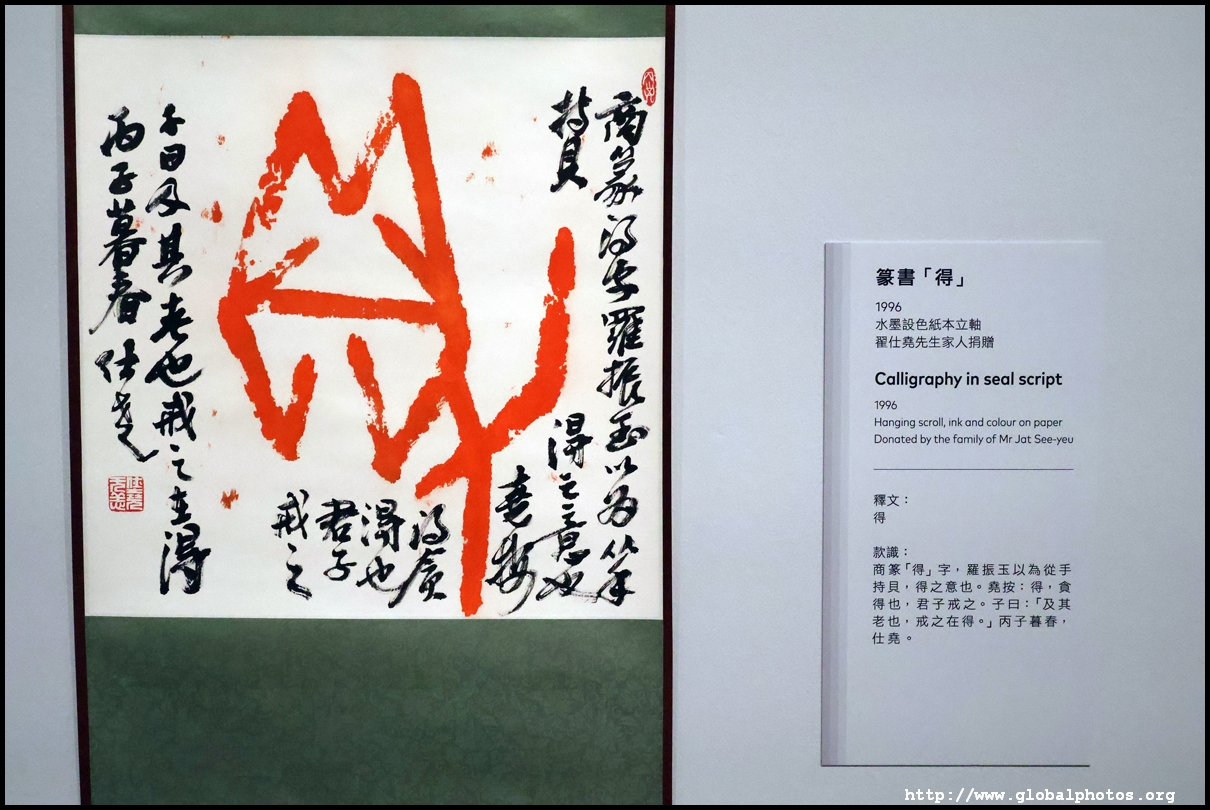 商篆得字羅振玉以為从手
持貝
得之意也
堯按
得貪
得也
君子
戒之
子曰及其老也戒之在得
丙子暮春仕堯
篆書「得」
1996
水墨設色紙本立軸
翟仕堯先生家人捐贈
Calligraphy in seal script
1996
Hanging scroll, ink and colour on paper
Donated by the family of Mr Jat See-yeu
釋文：
得
款識：
商篆「得」字，羅振玉以為從手
持貝，得之意也。堯按：得，貪
得也，君子戒之。子曰：「及其
老也，戒之在得。」丙子暮春，
仕堯。
http://www.globalphotos.org